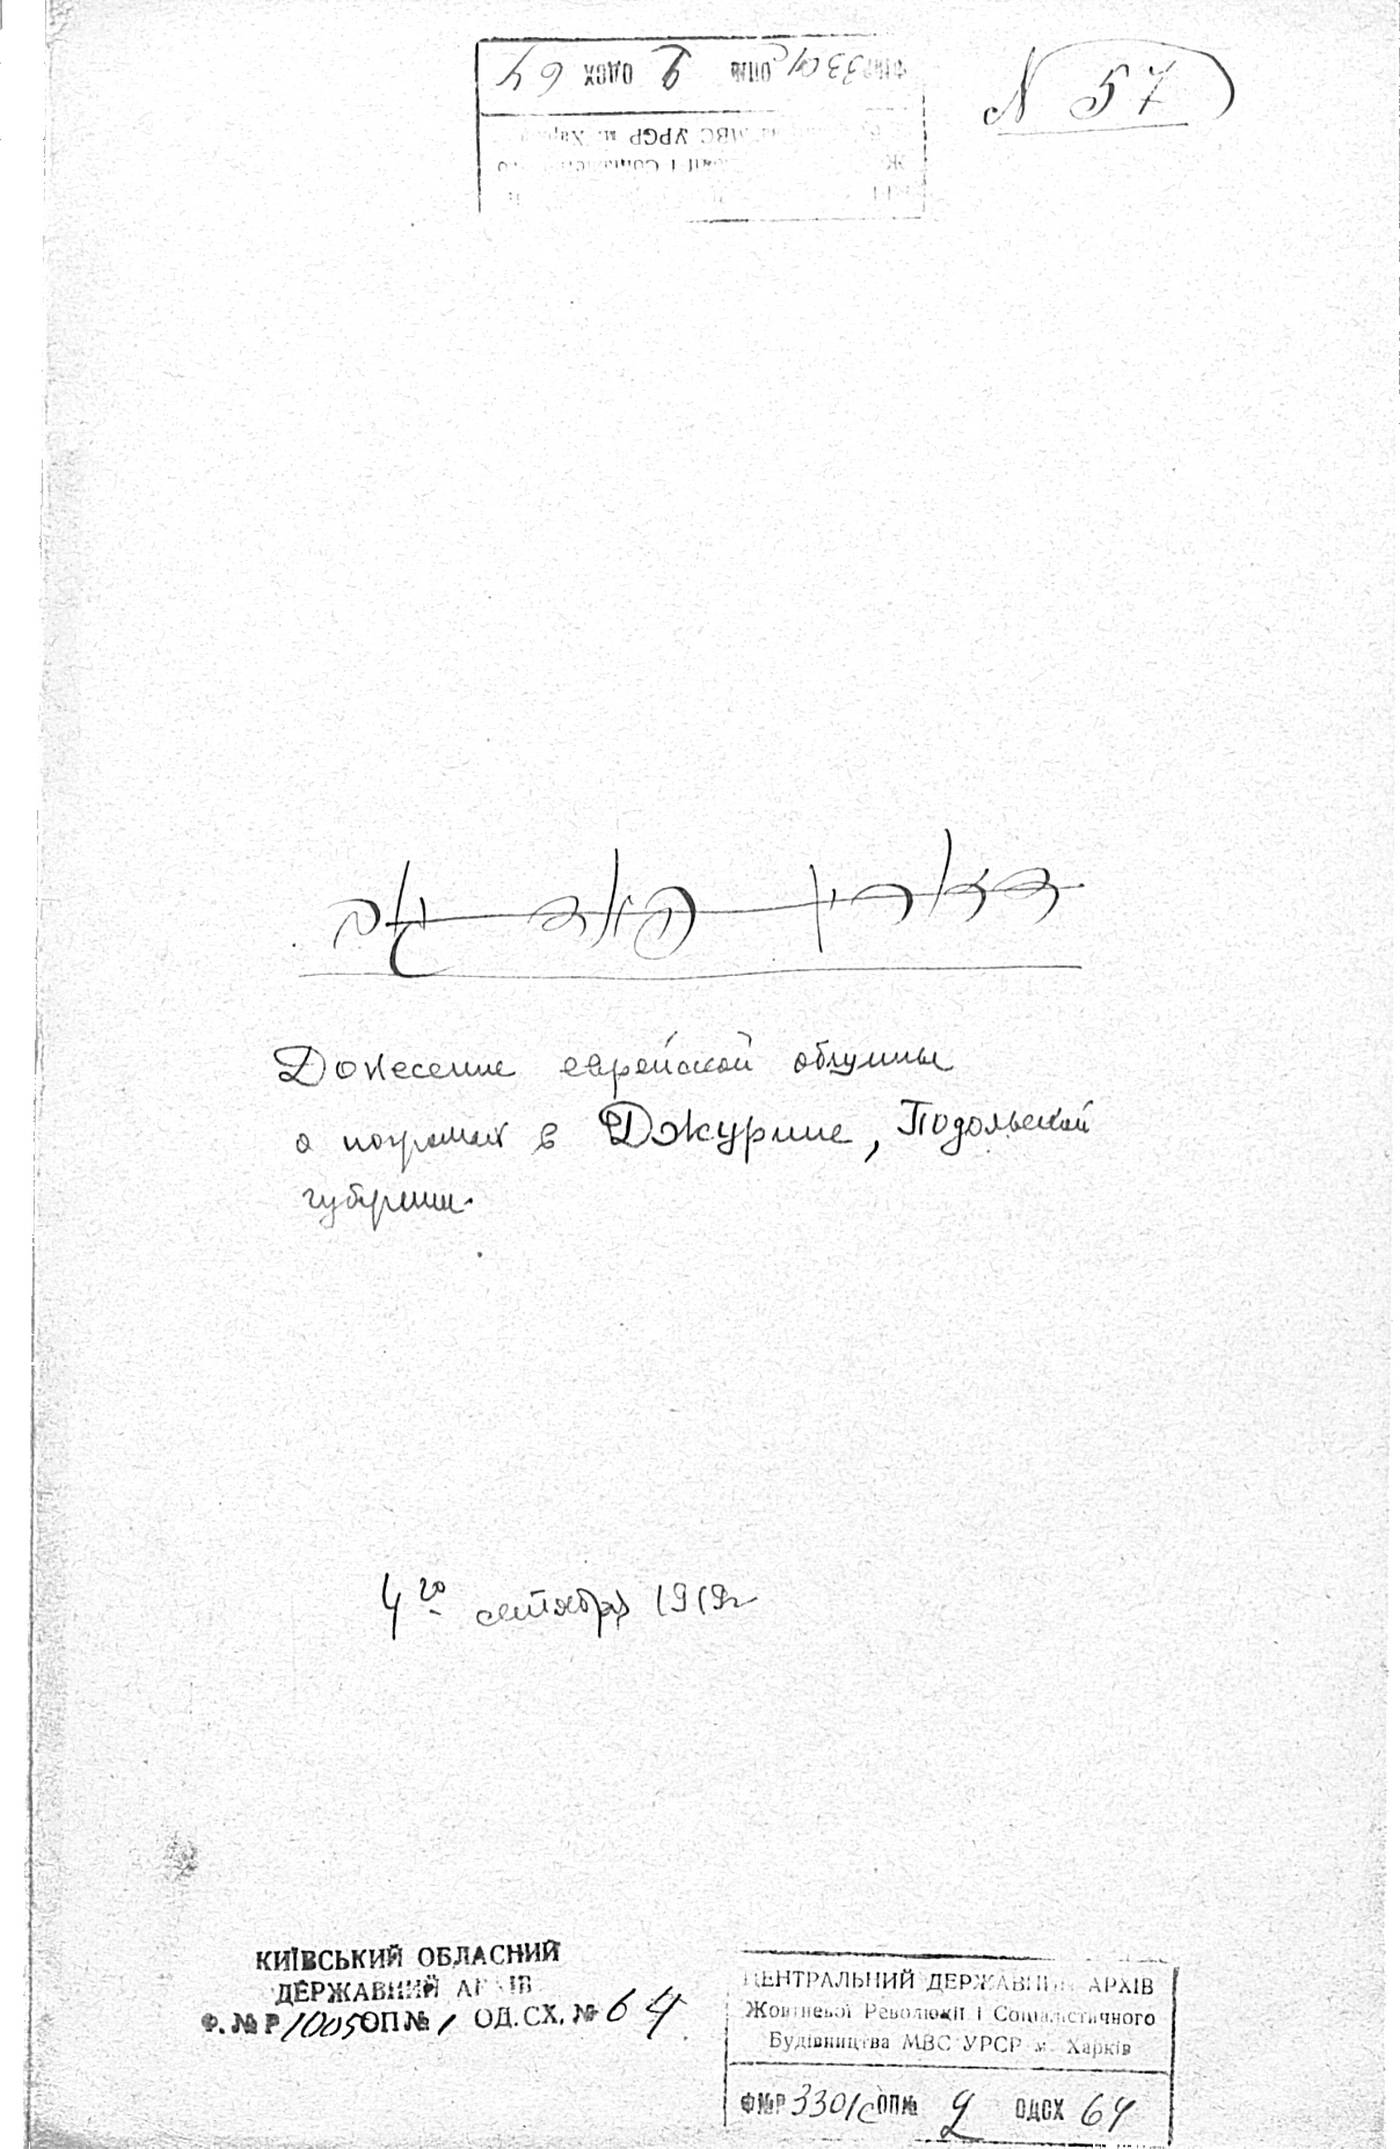 N 57
Донесение еврейской общины
о погромах в Джурине, Подольской
губернии.
4го сентября 1919г
КИЇВСЬКИЙ ОБЛАСНИЙ
ДЕРЖАВНИЙ АРХІВ
Ф. № Р 1005 ОП № 1 ОД. СХ. № 64
ЦЕНТРАЛЬНИЙ ДЕРЖАВНИЙ АРХІВ
Жовтневої Революції і Соціалістичного
Будівництва МВС УРСР м. Харків
Ф№Р 3301/с ОП№ 2 ОДСХ 64